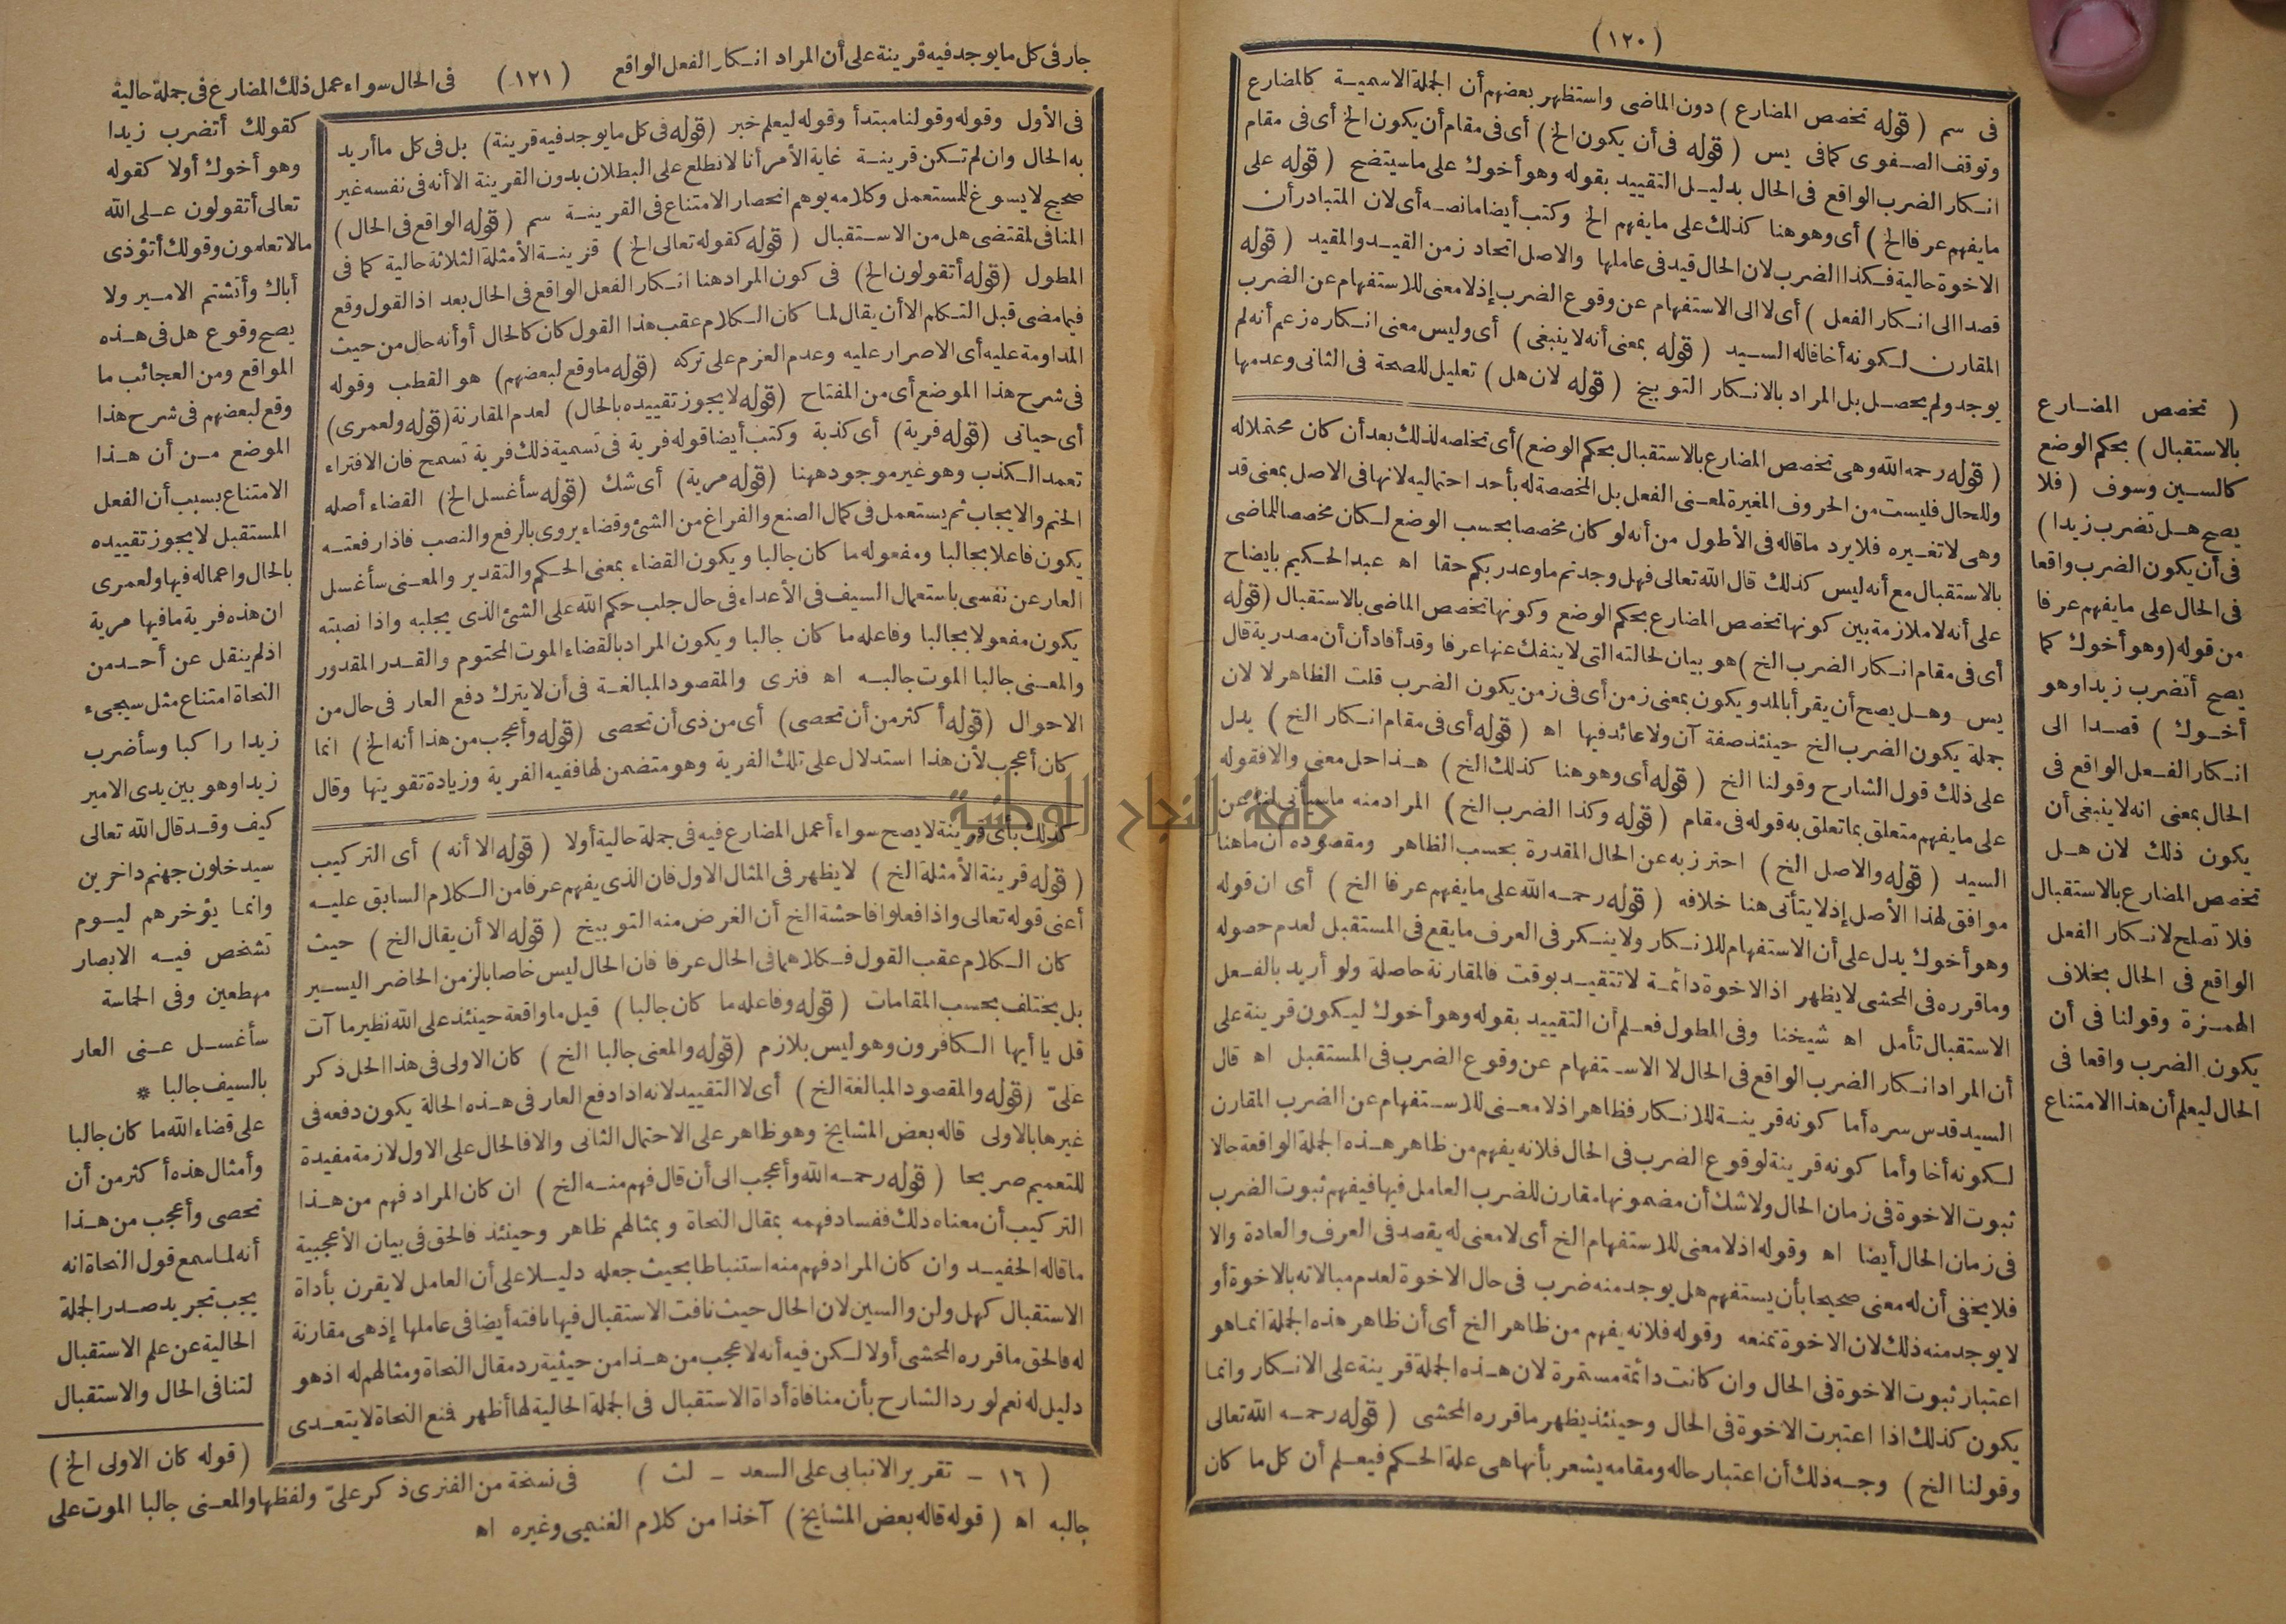 (١٢٠)
فى سم ( قوله تخصص المضارع ) دون الماضى واستظهر بعضهم أن الجملة الاسمية كالمضارع
وتوقف الصفوى كما فى يس ( قوله فى أن يكون الخ ) أى فى مقام أن يكون الخ أى فى مقام
انكار الضرب الواقع فى الحال بدليل التقييد بقوله وهو أخوك على ما سيتضح ( قوله على
ما يفهم عرفا الخ ) أى وهو هنا كذلك على ما يفهم الخ وكتب أيضا ما نصه أى لان المتبادر أن
الاخوة حالية فكذا الضرب لان الحال قيد فى عاملها والاصل اتحاد زمن القيد والمقيد ( قوله
قصدا الى انكار الفعل ) أى لا الى الاستفهام عن وقوع الضرب إذ لا معنى للاستفهام عن الضرب
المقارن لكونه أخا قاله السيد ( قوله بمعنى أنه لا ينبغى ) أى وليس معنى انكاره زعم أنه لم
يوجد ولم يحصل بل المراد بالانكار التوبيخ ( قوله لان هل ) تعليل للصحة فى الثانى وعدمها
( قوله رحمه الله وهى تخصص المضارع بالاستقبال بحكم الوضع) أى تخلصه لذلك بعد أن كان محتملا له
وللحال فليست من الحروف المغيرة لمعنى الفعل بل المخصصة له بأحد احتماليه لانها فى الاصل بمعنى قد
وهى لا تغيره فلا يرد ما قاله فى الأطول من أنه لو كان مخصصا بحسب الوضع لكان مخصصا للماضى
بالاستقبال مع أنه ليس كذلك قال الله تعالى فهل وجدتم ما وعد ربكم حقا اه عبد الحكيم بايضاح
على أنه لا ملازمة بين كونها تخصص المضارع بحكم الوضع وكونها تخصص الماضى بالاستقبال (قوله
أى فى مقام انكار الضرب الخ ) هو بيان لحالته التى لا ينفك عنها عرفا وقد أفاد أن أن مصدرية قال
يس وهل يصح أن يقرأ بالمد ويكون بمعنى زمن أى فى زمن يكون الضرب قلت الظاهر لا لان
جملة يكون الضرب الخ حينئذ صفة آن ولا عائد فيها اه ( قوله أى فى مقام انكار الخ ) يدل
على ذلك قول الشارح وقولنا الخ ( قوله أى وهو هنا كذلك الخ ) هذا حل معنى والا فقوله
على ما يفهم متعلق بما تعلق به قوله فى مقام ( قوله وكذا الضرب الخ ) المراد منه ما سيأتى لنا عن
السيد ( قوله والاصل الخ ) احترز به عن الحال المقدرة بحسب الظاهر ومقصوده أن ما هنا
موافق لهذا الأصل إذ لا يتأتى هنا خلافه ( قوله رحمه الله على ما يفهم عرفا الخ ) أى ان قوله
وهو أخوك يدل على أن الاستفهام للانكار ولا ينكر فى العرف ما يقع فى المستقبل لعدم حصوله
وما قرره فى المحشى لا يظهر اذ الاخوة دائمة لا تتقيد بوقت فالمقارنة حاصلة ولو أريد بالفعل
الاستقبال تأمل اه شيخنا وفى المطول فعلم أن التقييد بقوله وهو أخوك ليكون قرينة على
أن المراد انكار الضرب الواقع فى الحال لا الاستفهام عن وقوع الضرب فى المستقبل اه قال
السيد قدس سره أما كونه قرينة للانكار فظاهر اذ لا معنى للاستفهام عن الضرب المقارن
لكونه أخا وأما كونه قرينة لوقوع الضرب فى الحال فلانه يفهم من ظاهر هذه الجملة الواقعة حالا
ثبوت الاخوة فى زمان الحال ولا شك أن مضمونها مقارن للضرب العامل فيها فيفهم ثبوت الضرب
فى زمان الحال أيضا اه وقوله اذ لا معنى للاستفهام الخ أى لا معنى له يقصد فى العرف والعادة والا
فلا يخفى أن له معنى صحيحا بأن يستفهم هل يوجد منه ضرب فى حال الاخوة لعدم مبالاته بالاخوة أو
لا يوجد منه ذلك لان الاخوة تمنعه وقوله فلانه يفهم من ظاهر الخ أى أن ظاهر هذه الجملة انما هو
اعتبار ثبوت الاخوة فى الحال وان كانت دائمة مستمرة لان هذه الجملة قرينة على الانكار وانما
يكون كذلك اذا اعتبرت الاخوة فى الحال وحينئذ يظهر ما قرره المحشى ( قوله رحمه الله تعالى
وقولنا الخ ) وجه ذلك أن اعتبار حاله ومقامه يشعر بأنها هى علة الحكم فيعلم أن كل ما كان
( تخصص المضارع
بالاستقبال ) بحكم الوضع
كالسين وسوف ( فلا
يصح هل تضرب زيدا )
فى أن يكون الضرب واقعا
فى الحال على ما يفهم عرفا
من قوله (وهو أخوك كما
يصح أتضرب زيدا وهو
أخوك ) قصدا الى
انكار الفعل الواقع فى
الحال بمعنى انه لا ينبغى أن
يكون ذلك لان هل
تخصص المضارع بالاستقبال
فلا تصلح لانكار الفعل
الواقع فى الحال بخلاف
الهمزة وقولنا فى أن
يكون الضرب واقعا فى
الحال ليعلم أن هذا الامتناع
جار فى كل ما يوجد فيه قرينة على أن المراد انكار الفعل الواقع (١٢١) فى الحال سواء عمل ذلك المضارع فى جملة حالية
فى الأول وقوله وقولنا مبتدأ وقوله ليعلم خبر (قوله فى كل ما يوجد فيه قرينة) بل فى كل ما أريد
به الحال وان لم تكن قرينة غاية الأمر أنا لا نطلع على البطلان بدون القرينة الا أنه فى نفسه غير
صحيح لا يسوغ للمستعمل وكلامه يوهم انحصار الامتناع فى القرينة سم ( قوله الواقع فى الحال )
المنافى لمقتضى هل من الاستقبال ( قوله كقوله تعالى الخ ) قرينة الأمثلة الثلاثة حالية كما فى
المطول (قوله أتقولون الخ) فى كون المراد هنا انكار الفعل الواقع فى الحال بعد اذ القول وقع
فيما مضى قبل التكلم الا أن يقال لما كان الكلام عقب هذا القول كان كالحال أو أنه حال من حيث
المداومة عليه أى الاصرار عليه وعدم العزم على تركه (قوله ما وقع لبعضهم) هو القطب وقوله
فى شرح هذا الموضع أى من المفتاح (قوله لا يجوز تقييده بالحال) لعدم المقارنة (قوله ولعمرى)
أى حياتى (قوله فرية) أى كذبة وكتب أيضا قوله فرية فى تسمية ذلك فرية تسمح فان الافتراء
تعمد الكذب وهو غير موجود ههنا (قوله مرية) أى شك (قوله سأغسل الخ) القضاء أصله
الحتم والايجاب ثم يستعمل فى كمال الصنع والفراغ من الشئ وقضاء يروى بالرفع والنصب فاذا رفعته
يكون فاعلا بجالبا ومفعوله ما كان جالبا ويكون القضاء بمعنى الحكم والتقدير والمعنى سأغسل
العار عن نفسى باستعمال السيف فى الأعداء فى حال جلب حكم الله على الشئ الذى يجلبه واذا نصبته
يكون مفعولا بجالبا وفاعله ما كان جالبا ويكون المراد بالقضاء الموت المحتوم والقدر المقدور
والمعنى جالبا الموت جالبه اه فنرى والمقصود المبالغة فى أن لا يترك دفع العار فى حال من
الاحوال (قوله أكثر من أن تحصى) أى من ذى أن تحصى (قوله وأعجب من هذا أنه الخ) انما
كان أعجب لأن هذا استدلال على تلك الفرية وهو متضمن لها ففيه الفرية وزيادة تقويتها وقال
كذلك بأى قرينة لا يصح سواء أعمل المضارع فيه فى جملة حالية أولا ( قوله الا أنه ) أى التركيب
( قوله قرينة الأمثلة الخ ) لا يظهر فى المثال الاول فان الذى يفهم عرفا من الكلام السابق عليه
أعنى قوله تعالى واذا فعلوا فاحشة الخ أن الغرض منه التوبيخ ( قوله الا أن يقال الخ ) حيث
كان الكلام عقب القول فكلاهما فى الحال عرفا فان الحال ليس خاصا بالزمن الحاضر اليسير
بل يختلف بحسب المقامات ( قوله وفاعله ما كان جالبا ) قيل ما واقعة حينئذ على الله نظير ما آت
قل يا أيها الكافرون وهو ليس بلازم (قوله والمعنى جالبا الخ ) كان الاولى فى هذا الحل ذكر
علىّ (قوله والمقصود المبالغة الخ ) أى لا التقييد لانه اذا دفع العار فى هذه الحالة يكون دفعه فى
غيرها بالاولى قاله بعض المشايخ وهو ظاهر على الاحتمال الثانى والا فالحال على الاول لازمة مفيدة
للتعميم صريحا ( قوله رحمه الله وأعجب الى أن قال فهم منه الخ ) ان كان المراد فهم من هذا
التركيب أن معناه ذلك ففساد فهمه بمقال النحاة وبمثالهم ظاهر وحينئذ فالحق فى بيان الأعجبية
ما قاله الحفيد وان كان المراد فهم منه استنباطا بحيث جعله دليلا على أن العامل لا يقرن بأداة
الاستقبال كهل ولن والسين لان الحال حيث نافت الاستقبال فيها نافته أيضا فى عاملها إذ هى مقارنة
له فالحق ما قرره المحشى أولا لكن فيه أنه لا عجب من هذا من حيثية رد مقال النحاة ومثالهم له اذ هو
دليل له نعم لو رد الشارح بأن منافاة أداة الاستقبال فى الجملة الحالية لها أظهر فمنع النحاة لا يتعدى
كقولك أتضرب زيدا
وهو أخوك أولا كقوله
تعالى أتقولون على الله
مالا تعلمون وقولك أتؤذى
أباك وأتشتم الامير ولا
يصح وقوع هل فى هذه
المواقع ومن العجائب ما
وقع لبعضهم فى شرح هذا
الموضع من أن هذا
الامتناع بسبب أن الفعل
المستقبل لا يجوز تقييده
بالحال واعماله فيها ولعمرى
ان هذه فرية ما فيها مرية
اذ لم ينقل عن أحد من
النحاة امتناع مثل سيجىء
زيدا راكبا وسأضرب
زيدا وهو بين يدى الامير
كيف وقد قال الله تعالى
سيدخلون جهنم داخرين
وانما يؤخرهم ليوم
تشخص فيه الابصار
مهطعين وفى الحماسة
سأغسل عنى العار
بالسيف جالبا *
على قضاء الله ما كان جالبا
وأمثال هذه أكثر من أن
تحصى وأعجب من هذا
أنه لما سمع قول النحاة انه
يجب تجريد صدر الجملة
الحالية عن علم الاستقبال
لتنافى الحال والاستقبال
(قوله كان الاولى الخ )
( ١٦ - تقرير الانبابى على السعد - لث )
فى نسخة من الفنرى ذكر علىّ ولفظها والمعنى جالبا الموت على
جالبه اه ( قوله قاله بعض المشايخ) آخذا من كلام الغنيمى وغيره اه
جامعة النجاح الوطنية